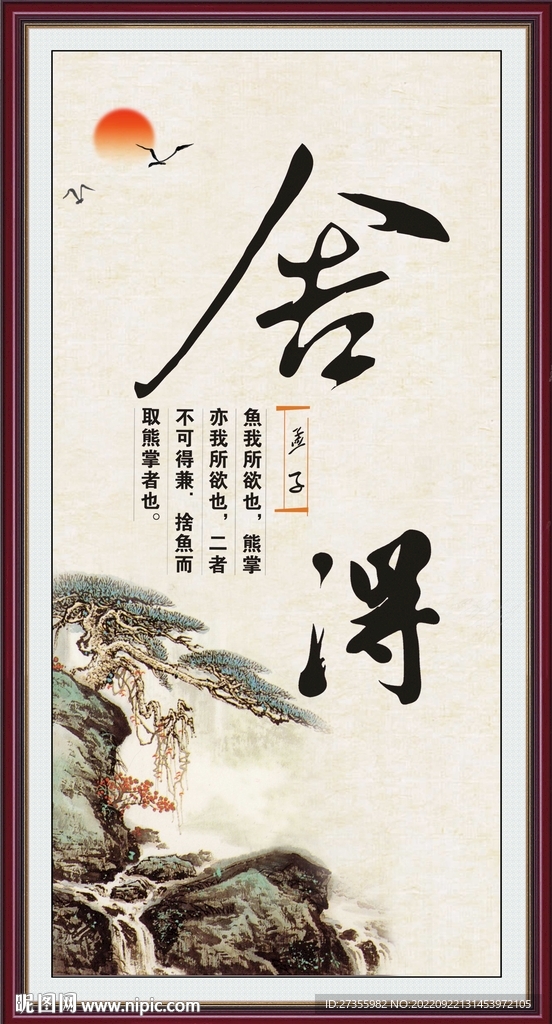 舍
得
孟子
魚我所欲也，熊掌
亦我所欲也，二者
不可得兼．捨魚而
取熊掌者也。
昵图网 www.nipic.com
ID:27355982 NO:20220922131453972105